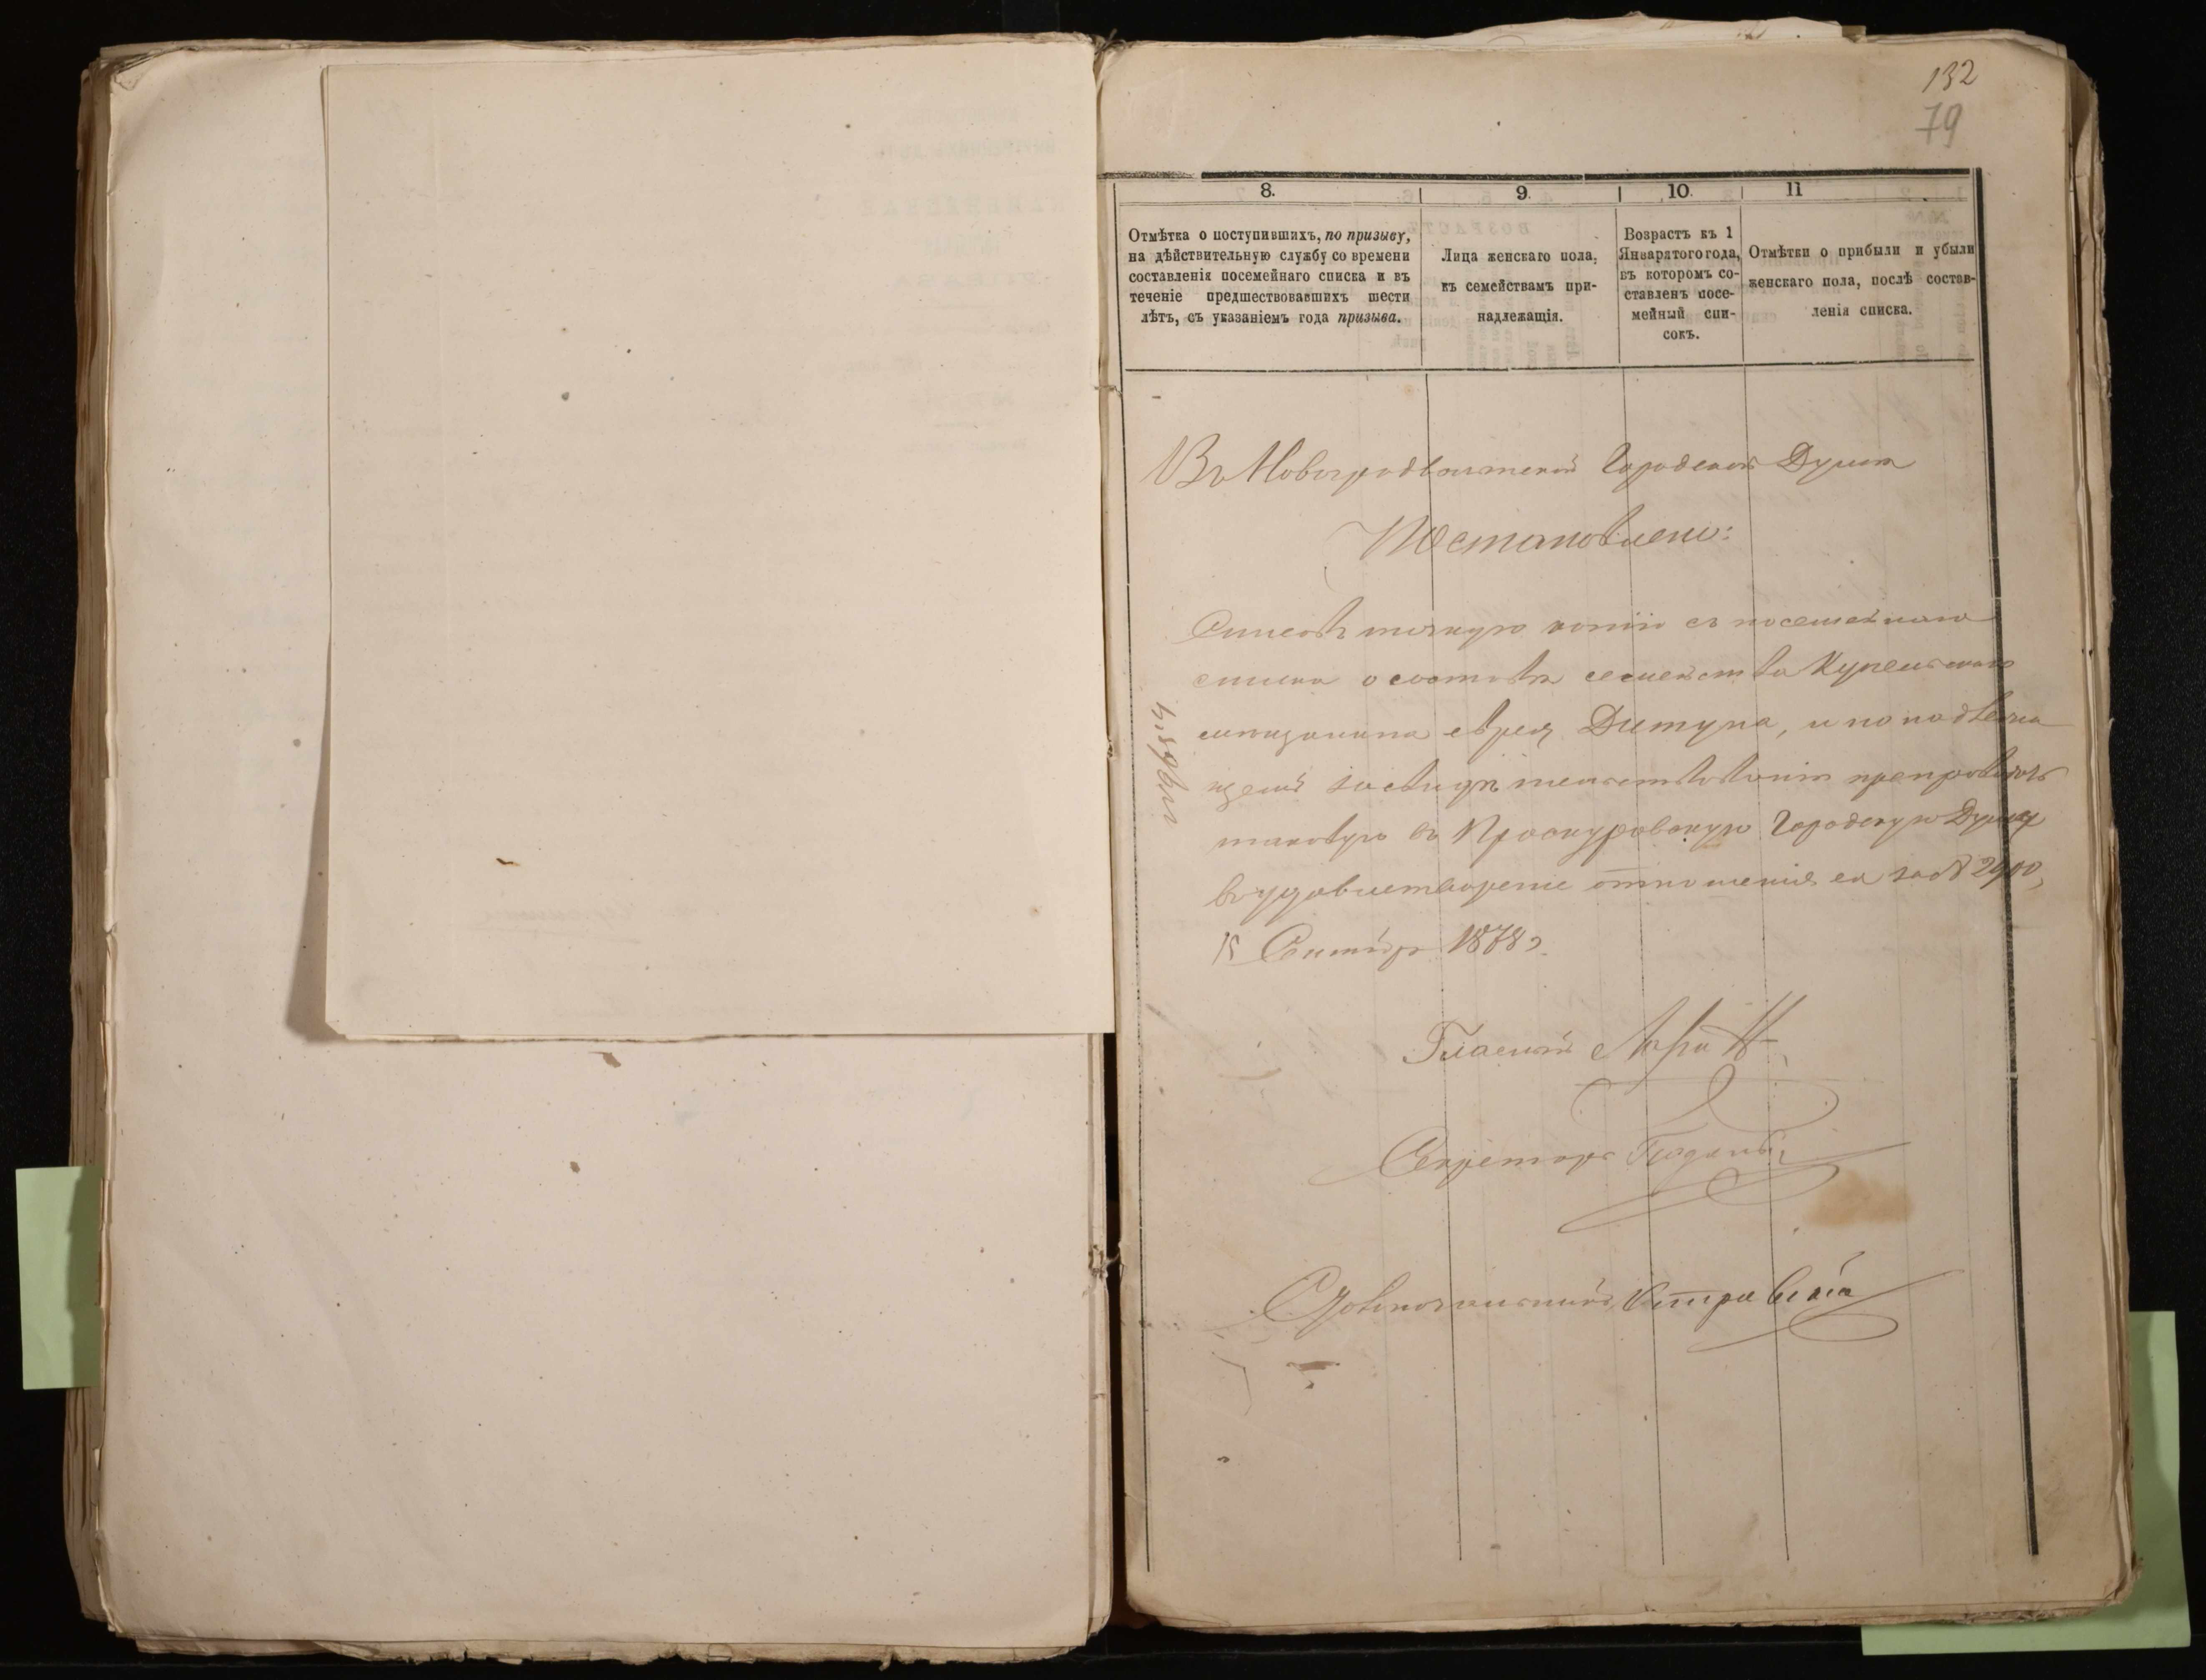 132
79
8.
9.
10.
11
Отмѣтка о поступившихъ, по призыву,
на дѣйствительную службу со времени
составленія посемейнаго списка и въ
теченіе предшествовавшихъ шести
лѣтъ, съ указаніемъ года призыва.
Лица женскаго пола,
къ семействамъ при-
надлежащія.
Возрастъ къ 1
Января того года,
въ которомъ со-
ставленъ посе-
мейный спи-
сокъ.
Отмѣтки о прибыли и убыли
женскаго пола, послѣ состав-
ленія списка.
Въ Новоградволынской Городской Думѣ
Постановлено:
Списать точную копію съ посемейнаго
списка о составѣ семейства Купельскаго
мѣщанина еврея Дитуна, и по надлежа
щемъ засвидѣтельствованіи препроводить
таковую въ Проскуровскую Городскую Думу
въ удовлетвореніе отношенія ея за № 2900,
15 Сентябр 1878 г.
Гласный
Секретарь
Столоначальникъ